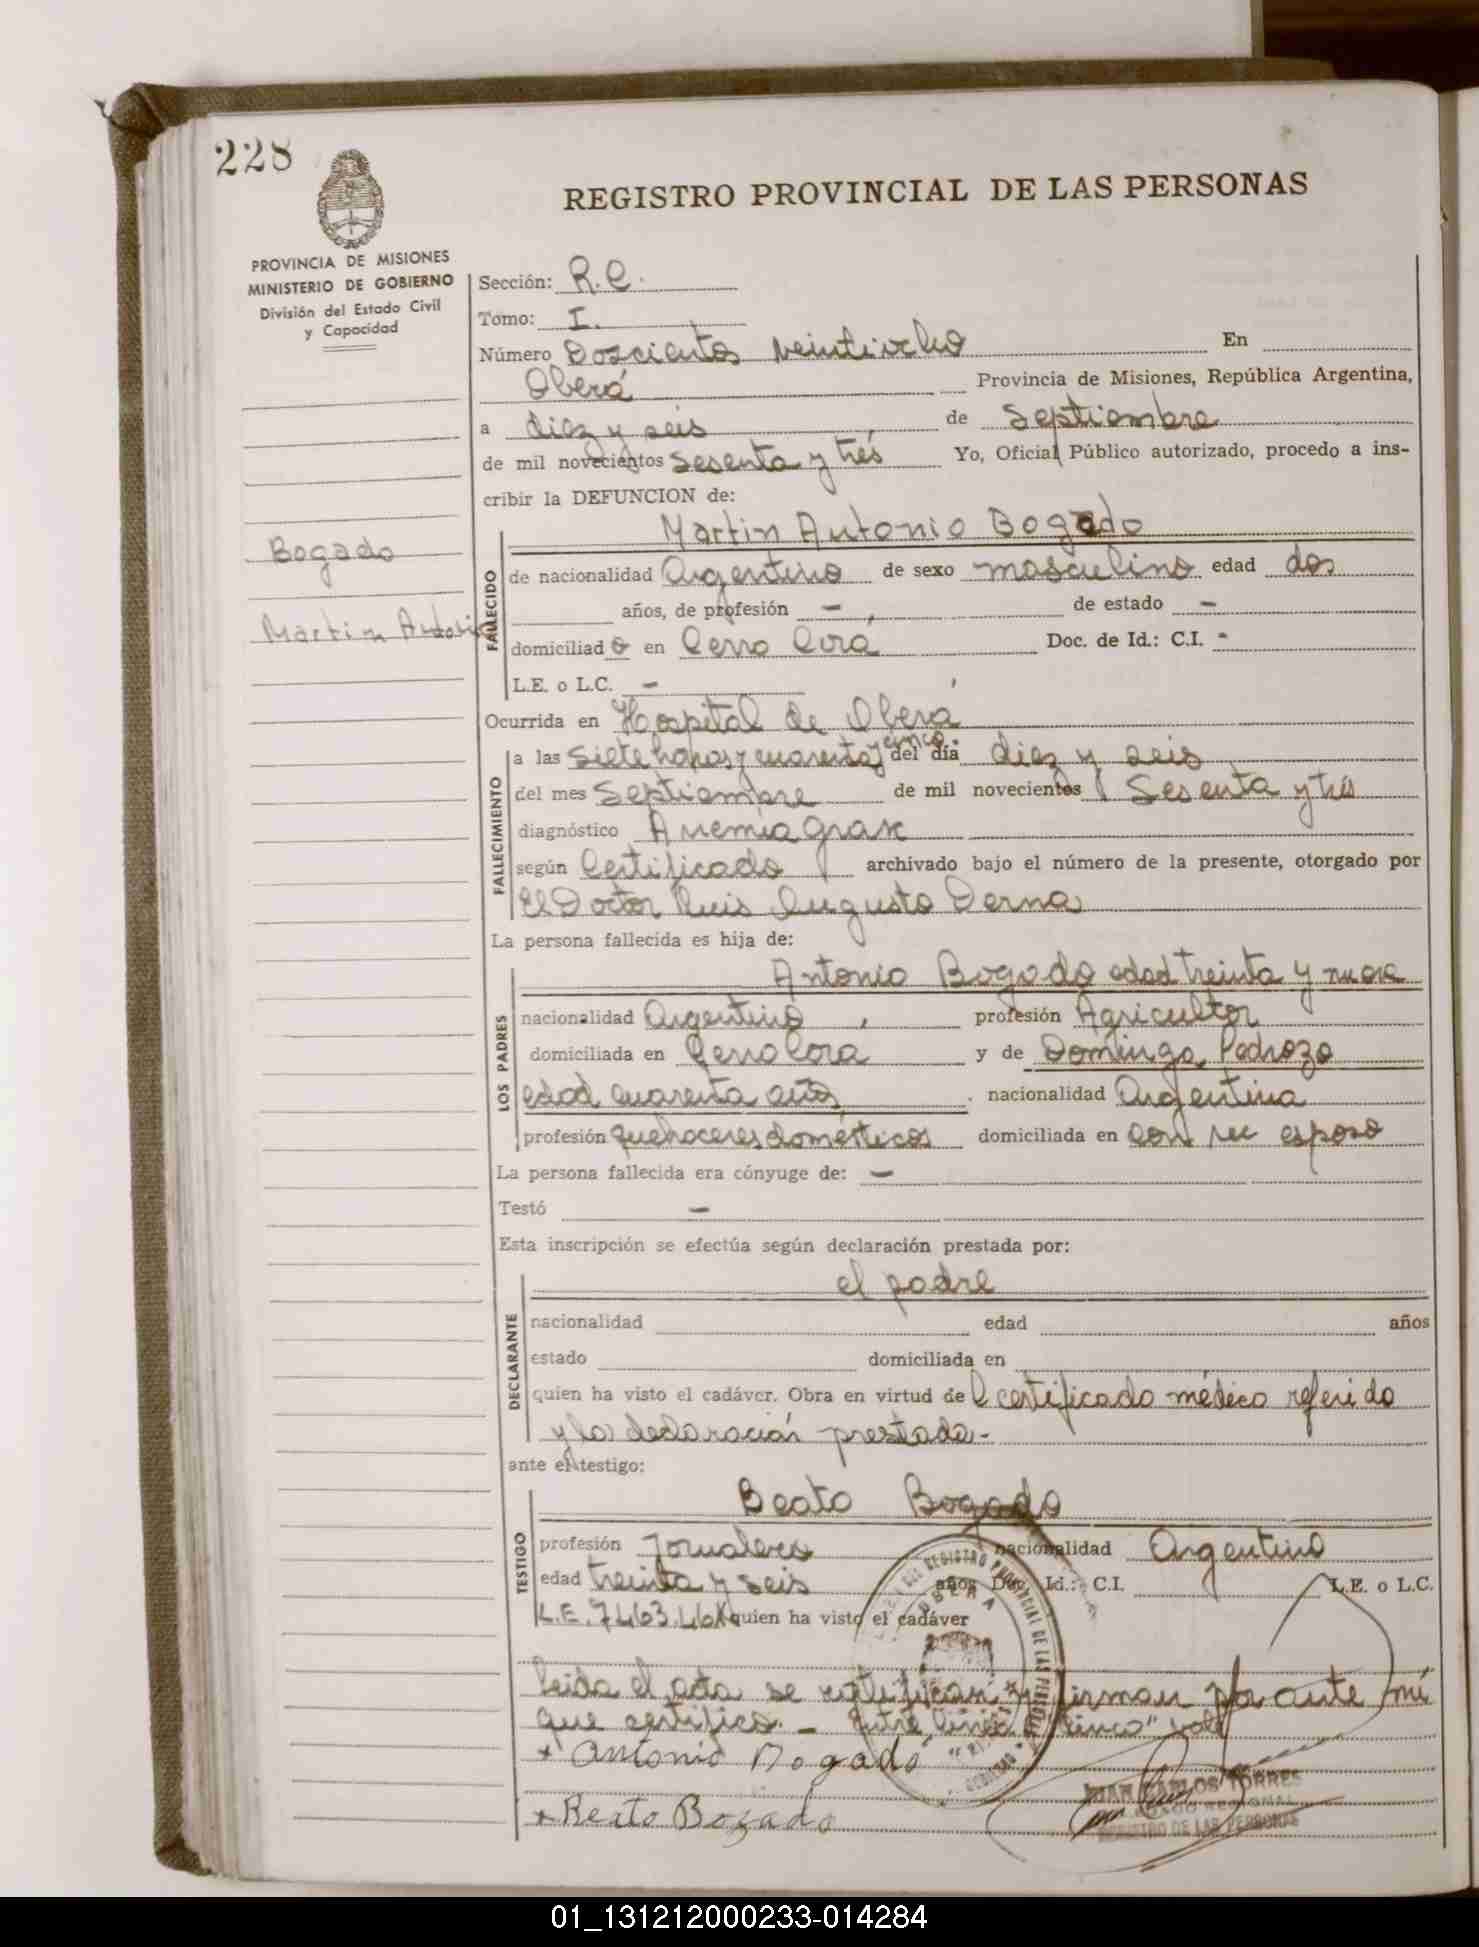 228
REGISTRO PROVINCIAL DE LAS PERSONAS
PROVINCIA DE MISIONES
MINISTERIO DE GOBIERNO
División del Estado Civil
y Capacidad
Bogado
Martin Antonio
Sección: R.C.
Tomo: I.
Número Doscientos veintiocho En
Oberá Provincia de Misiones, República Argentina,
a diez y seis de Septiembre
de mil novecientos Sesenta y trés Yo, Oficial Público autorizado, procedo a ins-
cribir la DEFUNCION de:
FALLECIDO
Martin Antonio Bogado
de nacionalidad Argentino de sexo masculino edad dos
años, de profesión - de estado -
domiciliado en Cerro Corá Doc. de Id.: C.I. -
L.E. o L.C. -
Ocurrida en Hospital de Oberá
FALLECIMIENTO
a las Siete horas y cuarenta y cinco del día diez y seis
del mes Septiembre de mil novecientos Sesenta y trés
diagnóstico Anemia grave
según Certificado archivado bajo el número de la presente, otorgado por
El Doctor Luis Augusto Derna
La persona fallecida es hija de:
LOS PADRES
Antonio Bogado edad treinta y nueve
nacionalidad Argentino profesión Agricultor
domiciliada en Cerro Cora y de Dominga Pedrozo
edad cuarenta años nacionalidad Argentina
profesión quehaceres domésticos domiciliada en con su esposo
La persona fallecida era cónyuge de: -
Testó -
Esta inscripción se efectúa según declaración prestada por:
DECLARANTE
el padre
nacionalidad edad años
estado domiciliada en
quien ha visto el cadáver. Obra en virtud del certificado médico referido
y la declaración prestada-
ante el testigo:
TESTIGO
Beato Bogado
profesión Jornalero nacionalidad Argentino
edad treinta y seis años Doc. Id.: C.I. L.E. o L.C.
L.E. 7.463.461 quien ha visto el cadáver
leida el acta se ratifican y firman por ante mí
que certifico. - Entre linea "cinco" vale
x Antonio Bogado
x Beato Bogado
REGISTRO PROVINCIAL DE LAS PERSONAS
OBERA
JUAN CARLOS TORRES
REGIONAL
REGISTRO DE LAS PERSONAS
01_131212000233-014284